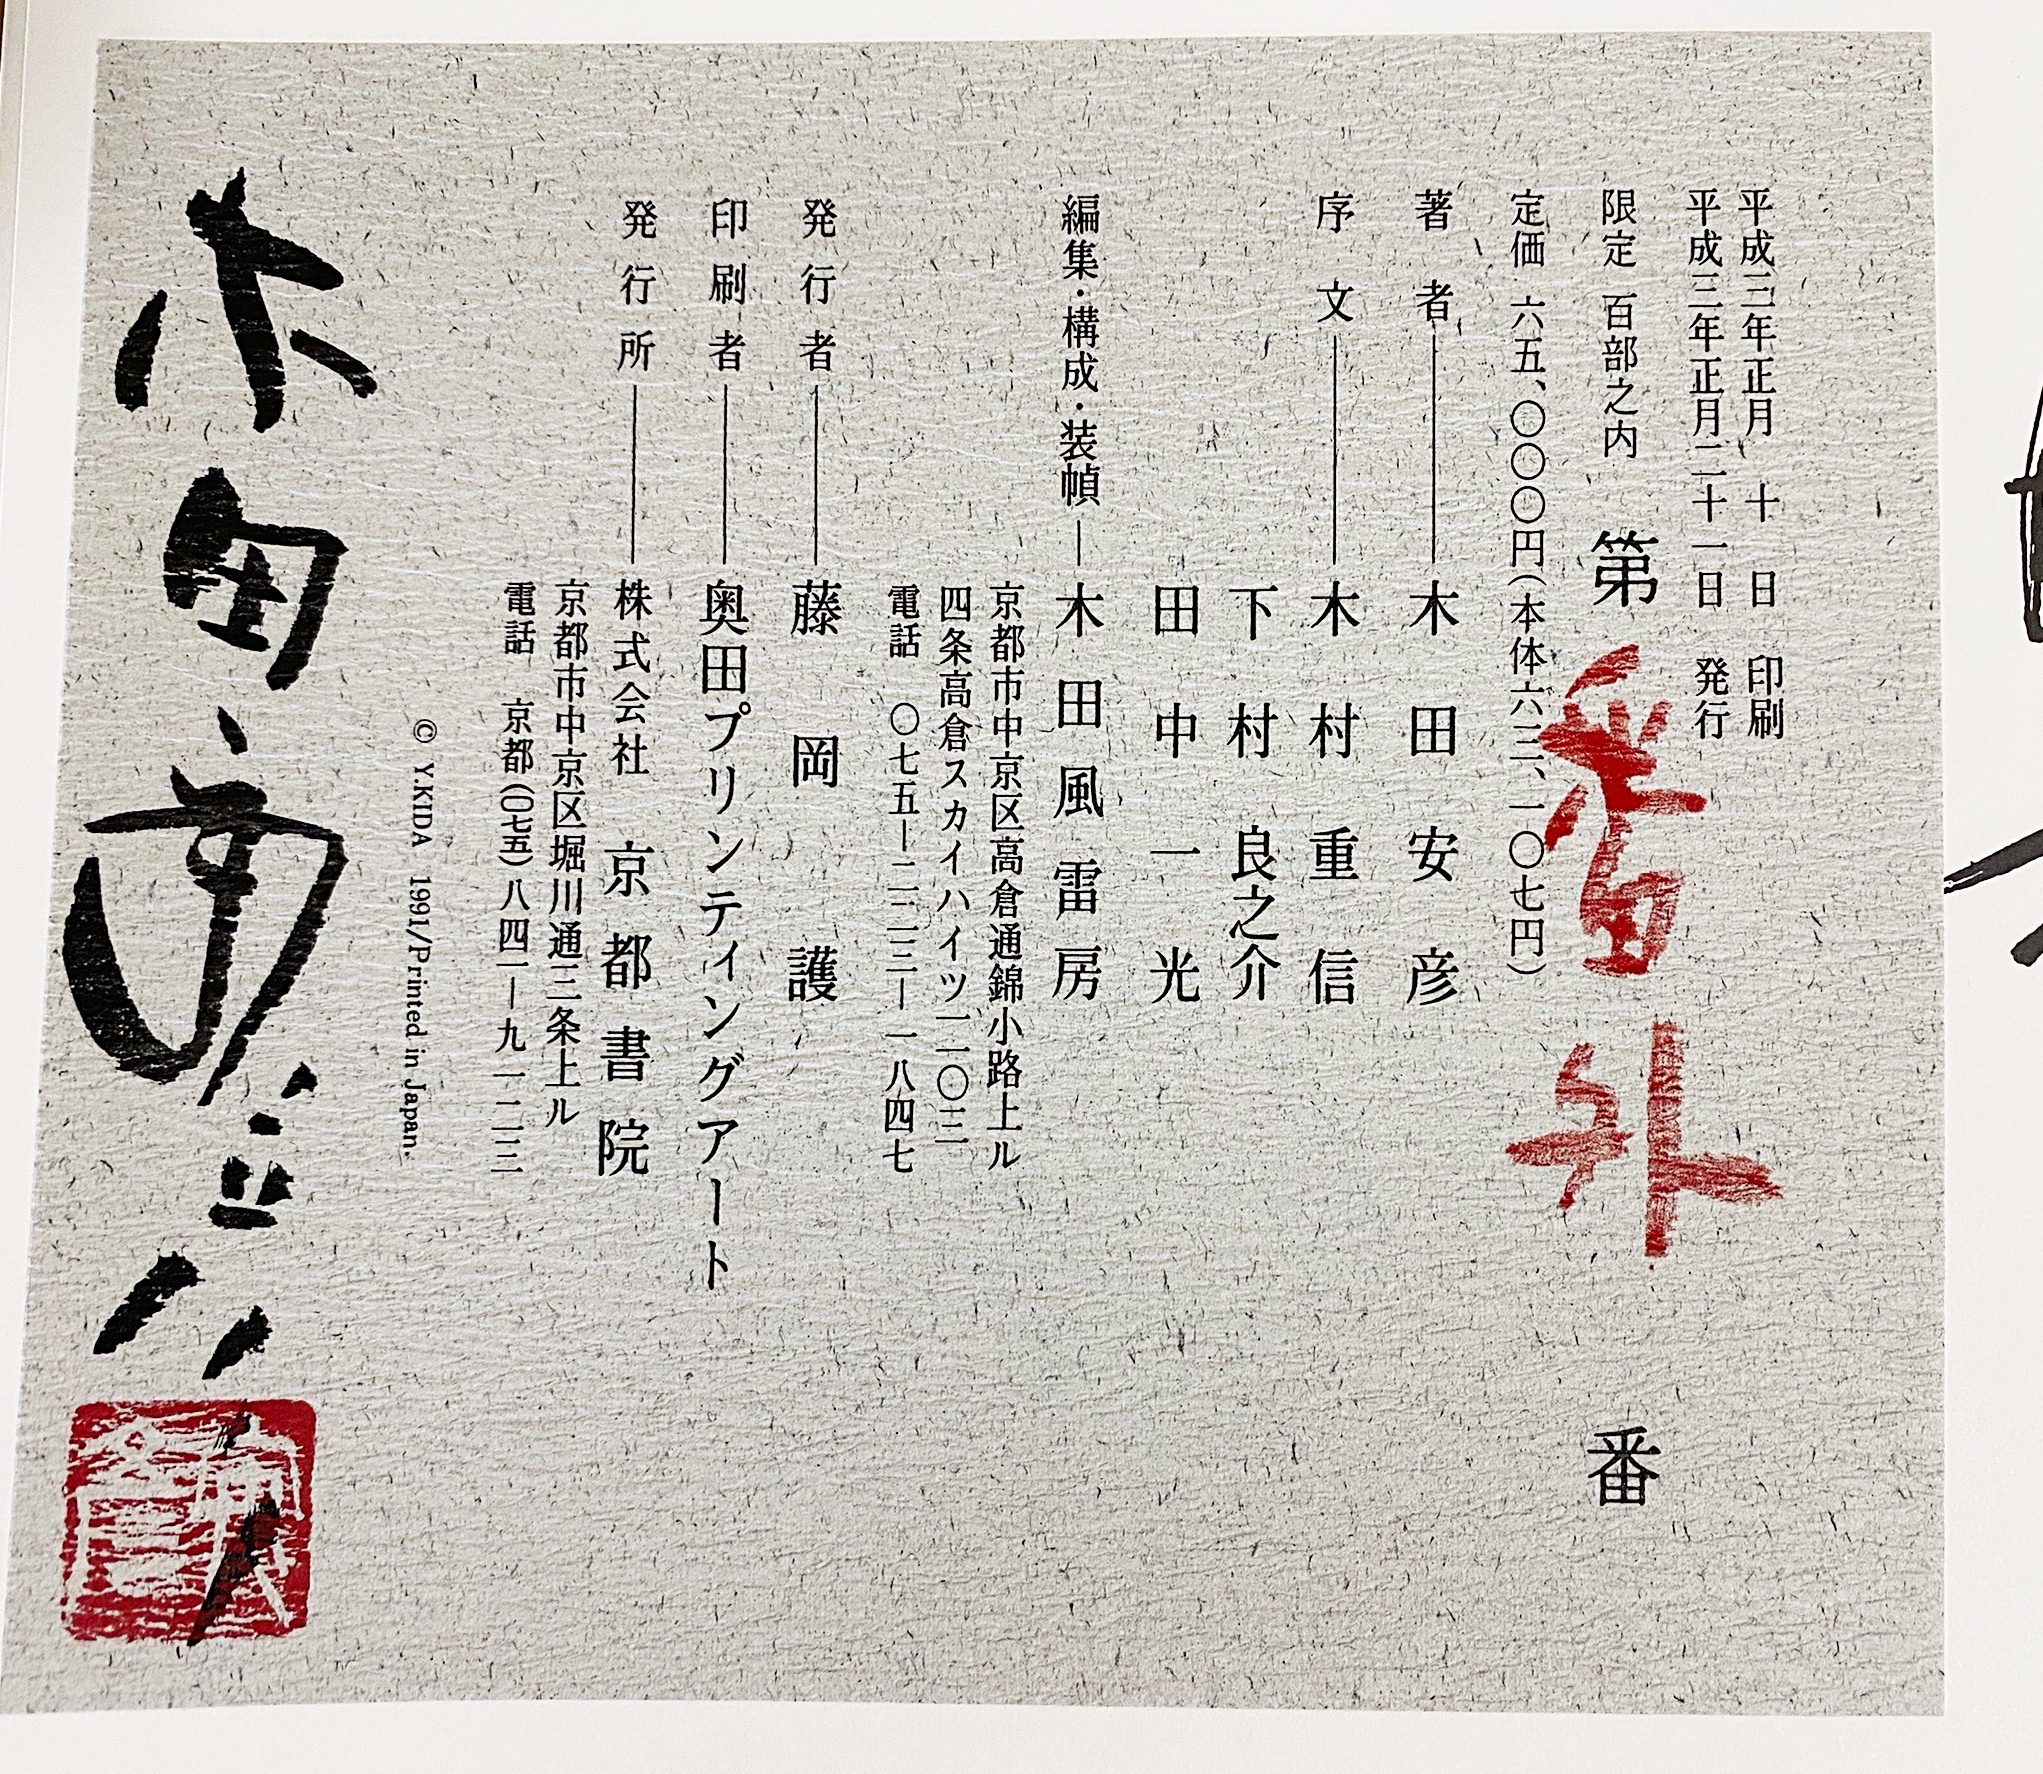 平成三年正月 十 日 印刷
平成三年正月二十一日 発行
限定 百部之内 第 番外 番
定価 六五、〇〇〇円(本体六三、一〇七円)
著者――木田安彦
序文――木村重信
下村良之介
田中一光
編集・構成・装幀―木田風雷房
京都市中京区高倉通錦小路上ル
四条高倉スカイハイツ一二〇三
電話 〇七五―二二三―一八四七
発行者――藤岡護
印刷者――奥田プリンティングアート
発行所――株式会社 京都書院
京都市中京区堀川通三条上ル
電話 京都(〇七五)八四一―九一二三
© Y.KIDA 1991/Printed in Japan.
木田安彦